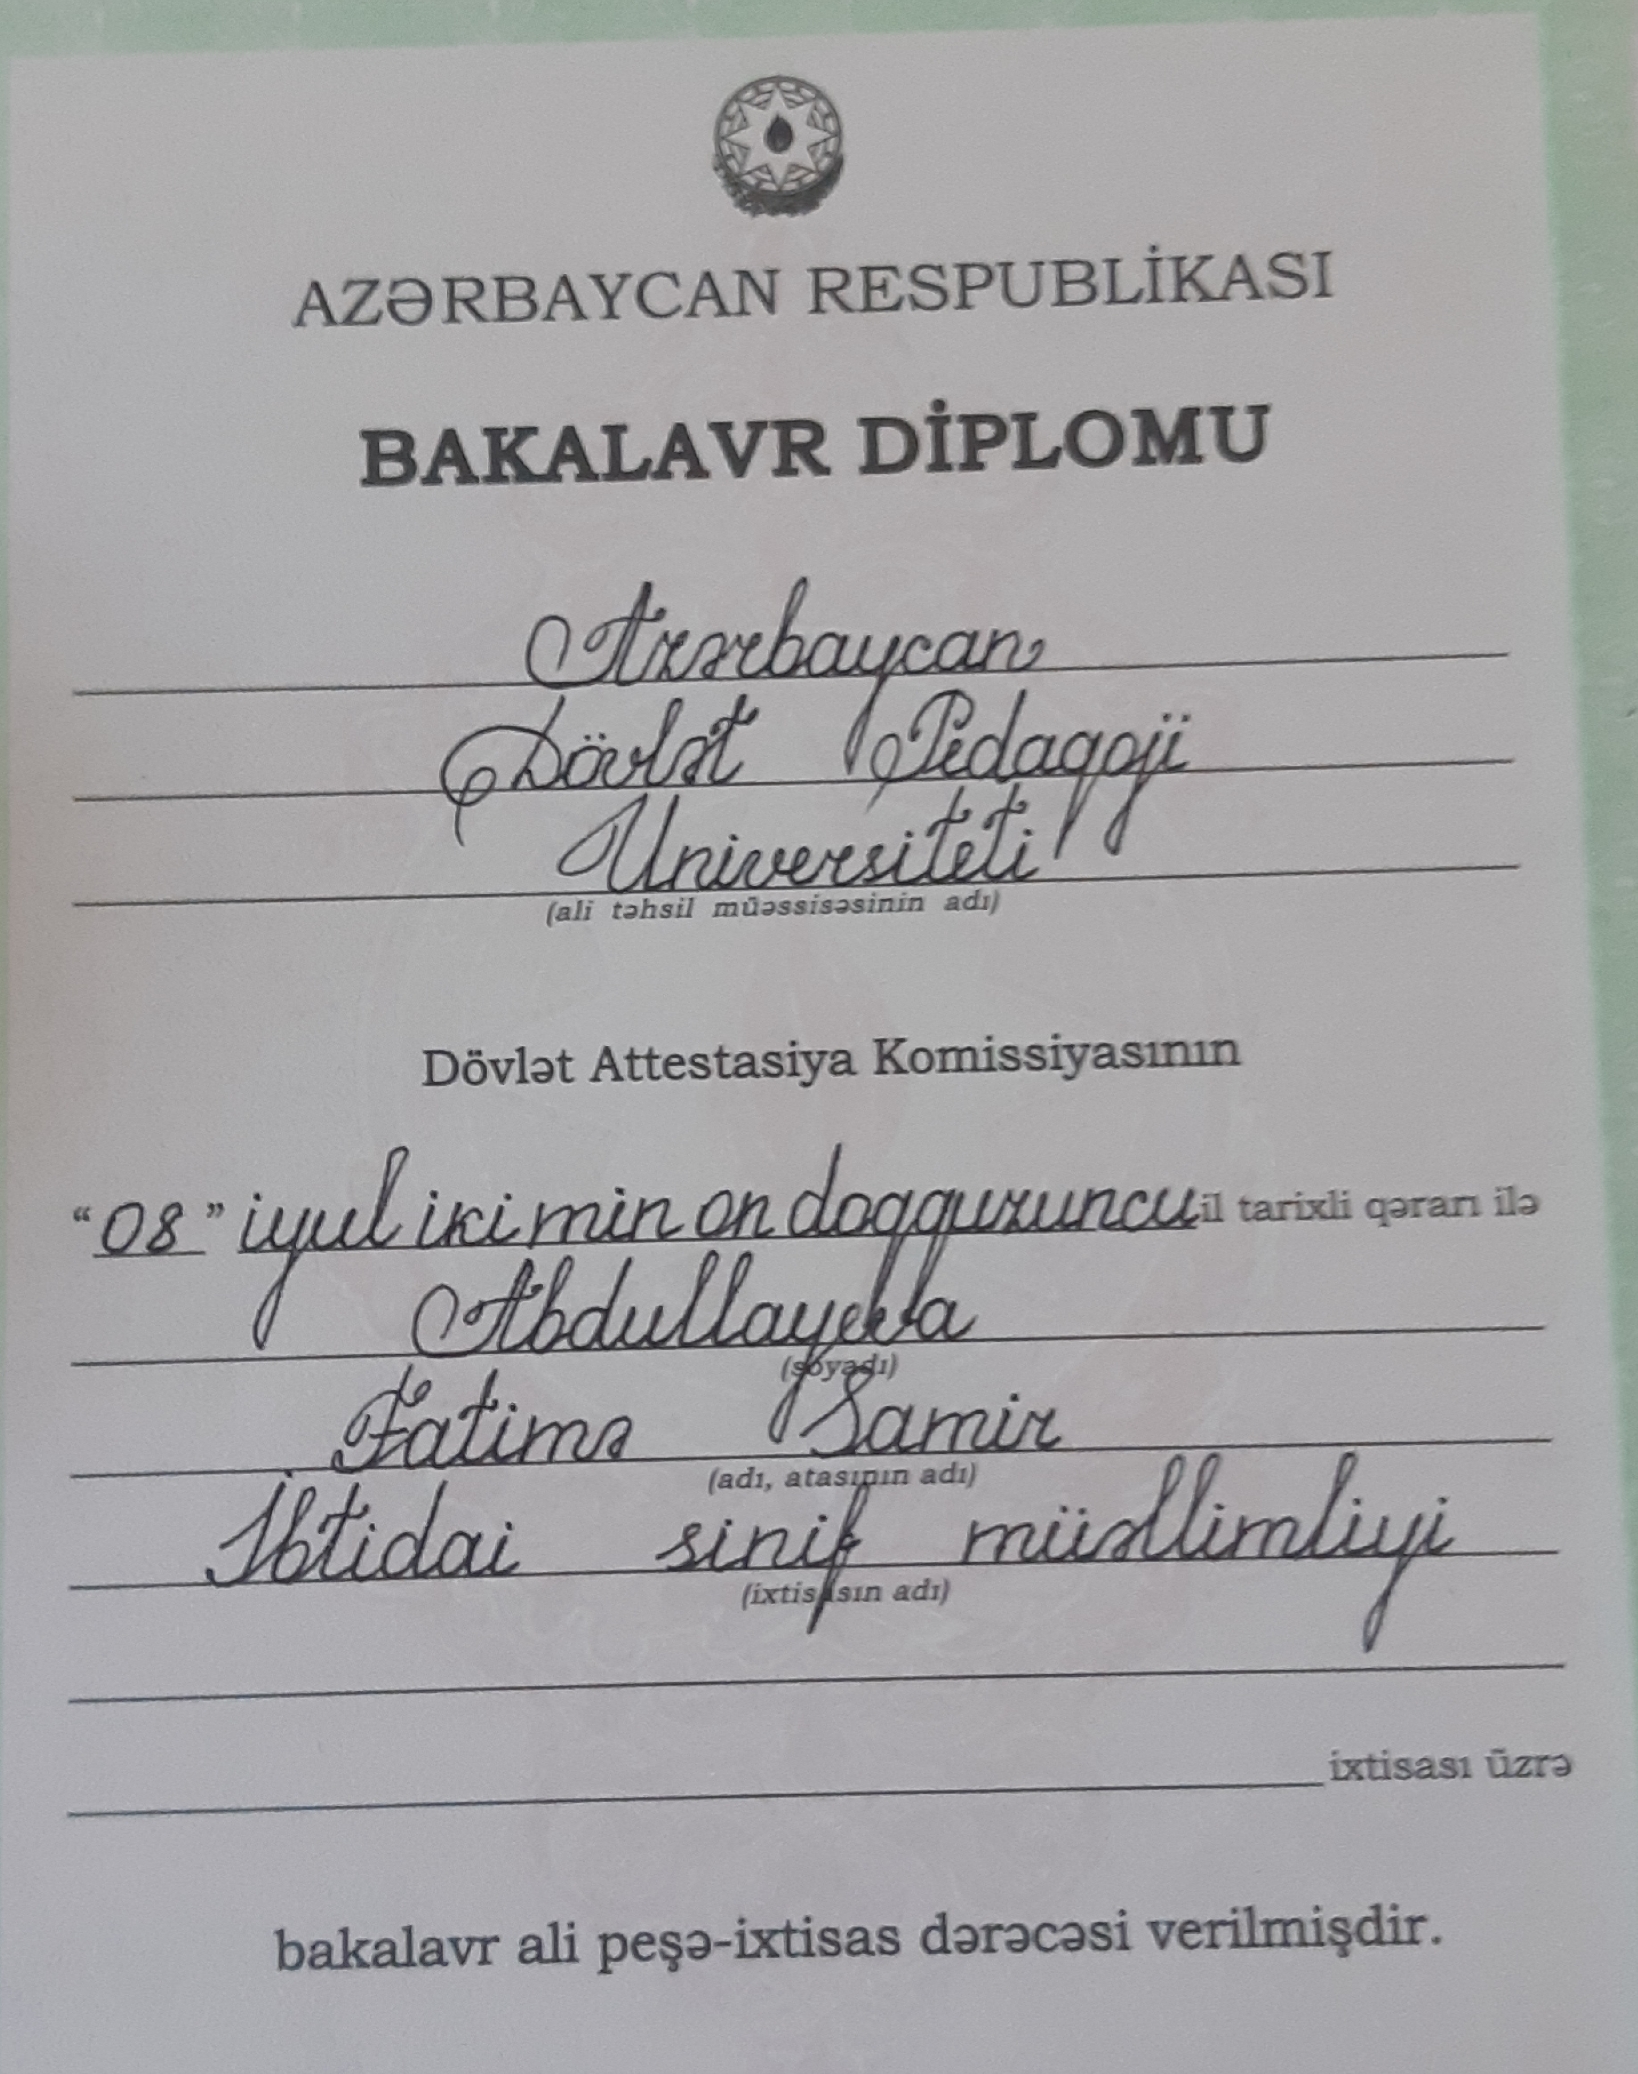 AZƏRBAYCAN RESPUBLİKASI
BAKALAVR DİPLOMU
Azərbaycan
Dövlət Pedaqoji
Universiteti
(ali təhsil müəssisəsinin adı)
Dövlət Attestasiya Komissiyasının
“08” iyul iki min on doqquzuncu il tarixli qərarı ilə
Abdullayeva
(soyadı)
Fatimə Samir
(adı, atasının adı)
İbtidai sinif müəllimliyi
(ixtisasın adı)
ixtisası üzrə
bakalavr ali peşə-ixtisas dərəcəsi verilmişdir.